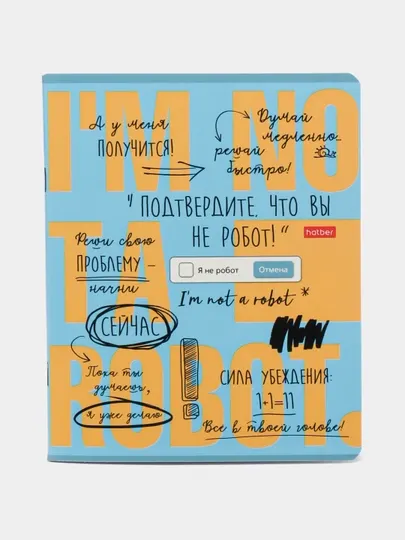 I'M NO
T A
ROBOT.
А у меня
ПОЛУЧИТСЯ!
Думай
медленно...
решай
быстро!
"ПОДТВЕРДИТЕ, ЧТО ВЫ
НЕ РОБОТ!"
hatber
Реши свою
ПРОБЛЕМУ –
начни
СЕЙЧАС
Я не робот
Отмена
I'm not a robot *
Пока ты
думаешь,
я уже делаю
СИЛА УБЕЖДЕНИЯ:
1+1=11
Все в твоей голове!